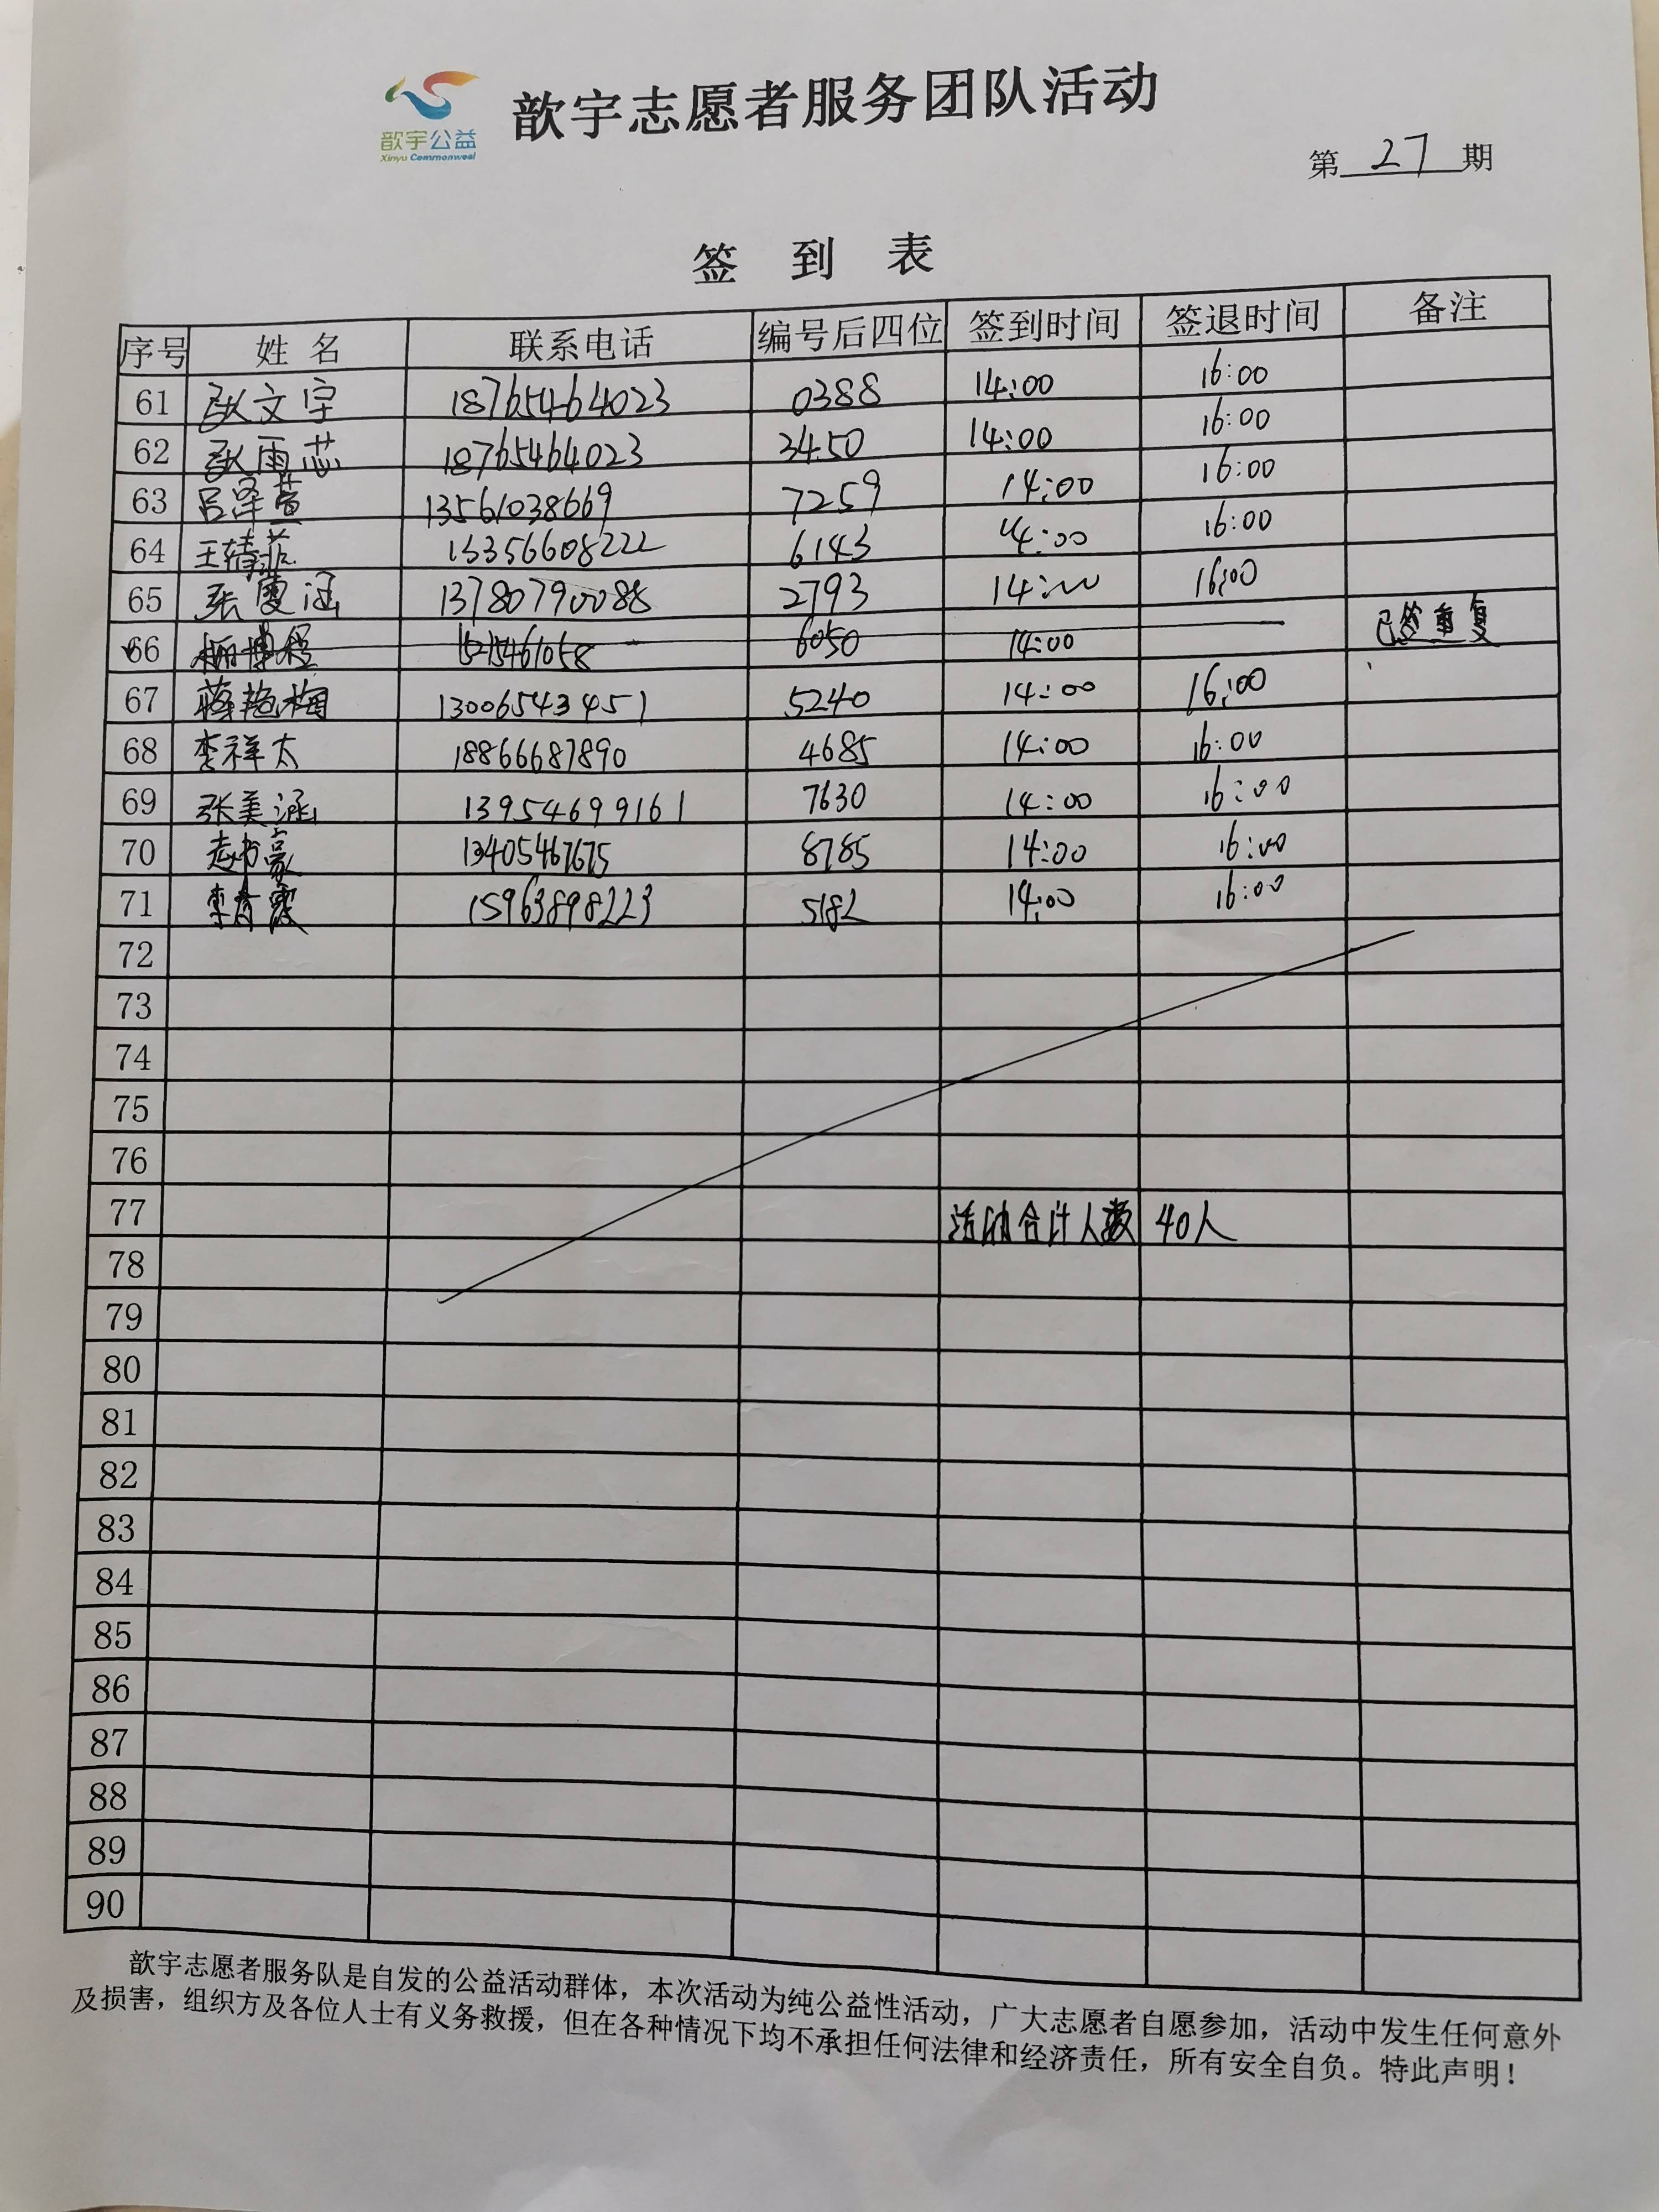 歆宇公益
Xinyu Commonweal
歆宇志愿者服务团队活动
第 27 期
签 到 表
序号 姓 名 联系电话 编号后四位 签到时间 签退时间 备注
61 文宇 18765464023 0388 14:00 16:00
62 雨芯 18765464023 3450 14:00 16:00
63 吕泽萱 13561038669 7259 14:00 16:00
64 王菲 13356608222 6143 14:00 16:00
65 张涵 13780790088 2793 14:00 16:00
66 6050 14:00 已签重复
67 蒋艳梅 13006543451 5240 14:00 16:00
68 李祥太 18866687890 4685 14:00 16:00
69 张美涵 13954699161 7630 14:00 16:00
70 赵书豪 13405467675 8785 14:00 16:00
71 李霞 15963898223 5182 14:00 16:00
72
73
74
75
76
77 活动合计人数 40人
78
79
80
81
82
83
84
85
86
87
88
89
90
歆宇志愿者服务队是自发的公益活动群体，本次活动为纯公益性活动，广大志愿者自愿参加，活动中发生任何意外
及损害，组织方及各位人士有义务救援，但在各种情况下均不承担任何法律和经济责任，所有安全自负。特此声明！